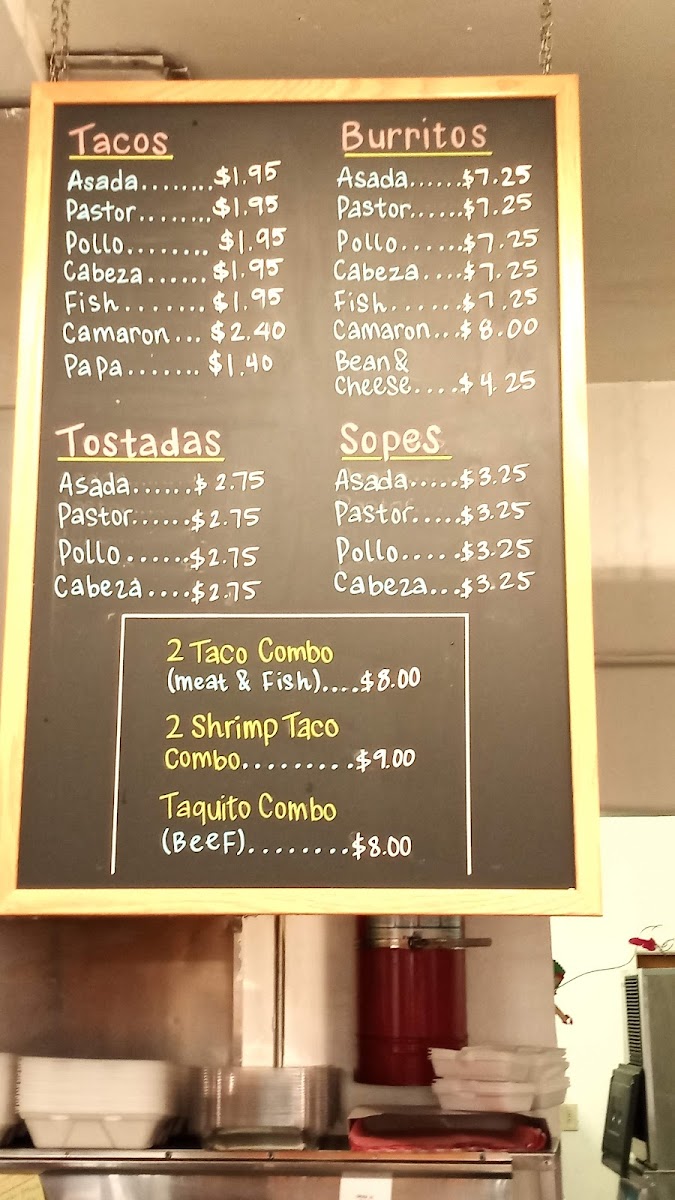 Tacos
Asada........$1.95
Pastor........$1.95
Pollo........ $1.95
Cabeza...... $1.95
Fish....... $1.95
Camaron... $2.40
Papa....... $1.40
Burritos
Asada......$7.25
Pastor......$7.25
Pollo......$7.25
Cabeza....$7.25
Fish.......$7.25
Camaron...$8.00
Bean &
Cheese....$4.25
Tostadas
Asada......$2.75
Pastor......$2.75
Pollo......$2.75
Cabeza....$2.75
Sopes
Asada.....$3.25
Pastor.....$3.25
Pollo.....$3.25
Cabeza...$3.25
2 Taco Combo
(meat & Fish)....$8.00
2 Shrimp Taco
Combo.........$9.00
Taquito Combo
(Beef)........$8.00